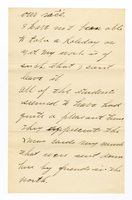 own said.
I have not been able
to take a holiday on
a/c my work is of
such, that I can't
leave it
all of the students
seemed to have had
quite a pleasant time
They appreciate the
very much
that were sent down
here by friends in the
north